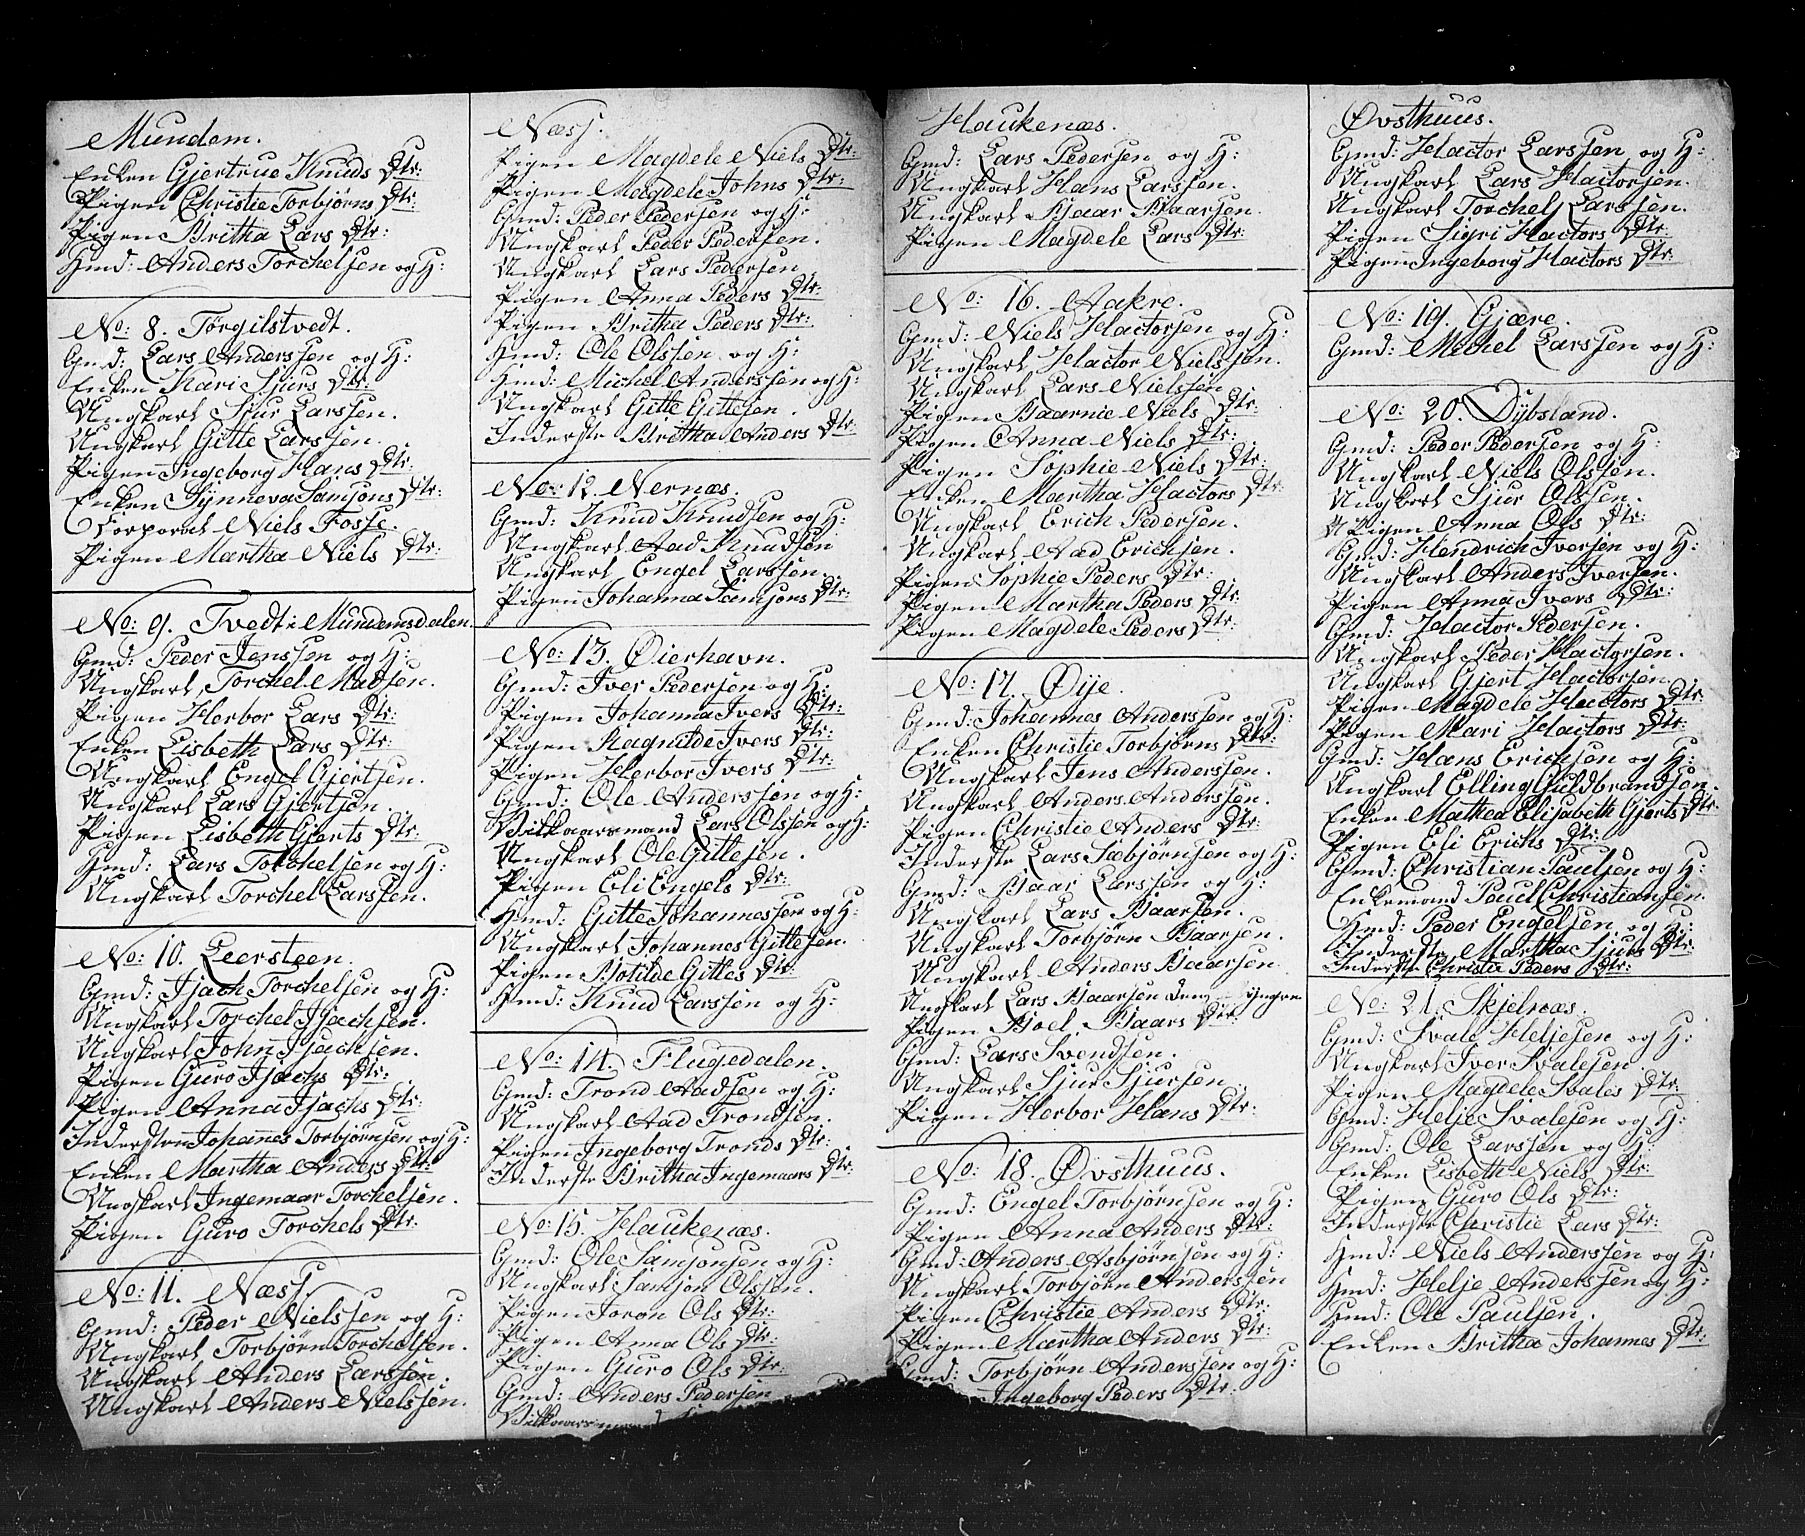 Mundem.
Enken Gjertrue Knuds Dtr:
Pigen Christie Torbjørns Dtr:
Pigen Britha Lars Dtr:
Hmd: Anders Torchelsen og H:
No: 8. Tørgilstvedt.
Gmd: Lars Anderssen og H:
Enken Kari Sjurs Dtr:
Ungkarl Sjur Larssen.
Ungkarl Gitle Larssen.
Pigen Ingeborg Hans Dtr:
Enken Synneva Samsons Dtr:
Corporal Niels Fosse.
Pigen Martha Niels Dtr:
No: 9. Tvedt i Mundemsdalen
Gmd: Peder Jenssen og H:
Ungkarl Torchel Madsen.
Pigen Herbor Lars Dtr:
Enken Lisbeth Lars Dtr:
Ungkarl Engel Gjertsen.
Ungkarl Lars Gjertsen.
Pigen Lisbeth Gjerts Dtr:
Hmd: Lars Torchelsen og H:
Ungkarl Torchel Larssen.
No: 10. Leersteen.
Gmd: Isach Torchelsen og H:
Ungkarl Torchel Isachsen.
Ungkarl John Isachsen.
Pigen Guro Isachs Dtr:
Pigen Anna Isachs Dtr:
Indersten Johannes Torbjørnsen og H:
Enken Martha Anders Dtr:
Ungkarl Ingemaar Torchelsen.
Pigen Guro Torchels Dtr:
No: 11. Næss.
Gmd: Peder Nielssen og H:
Ungkarl Torbjørn Torchelsen.
Ungkarl Anders Larssen.
Ungkarl Anders Nielssen.
Næss.
Pigen Magdele Niels Dtr:
Pigen Magdele Johns Dtr:
Gmd: Peder Pedersen og H:
Ungkarl Peder Pedersen.
Ungkarl Lars Pedersen
Pigen Anna Peders Dtr:
Pigen Britha Peders Dtr:
Hmd: Ole Olssen og H:
Hmd: Michel Anderssen og H:
Ungkarl Gitle Gitlesen.
Inderste Britha Anders Dtr:
No: 12. Nernæs.
Gmd: Knud Knudsen og H:
Ungkarl Aad Knudsen
Ungkarl Engel Larssen.
Pigen Johanna Samsons Dtr:
No: 13. Øierhavn.
Gmd: Iver Pedersen og H:
Pigen Johanna Ivers Dtr:
Pigen Ragnilde Ivers Dtr:
Pigen Herbor Ivers Dtr:
Gmd: Ole Anderssen og H:
Vilkaarsmand Lars Olssen og H:
Ungkarl Ole Gitlesen.
Pigen Eli Engels Dtr:
Hmd: Gitle Johannessen og H:
Ungkarl Johannes Gitlesen.
Pigen Botilde Gitles Dtr:
Hmd: Knud Larssen og H:
No: 14. Flugedalen.
Gmd: Trond Aadsen og H:
Ungkarl Aad Trondsen.
Pigen Ingeborg Tronds Dtr:
Inderste Britha Ingemaars Dtr:
No: 15. Haukenæs.
Gmd: Ole Samsonsen og H:
Ungkarl Samson Olssen.
Pigen Joron Ols Dtr:
Pigen Anna Ols Dtr:
Pigen Guro Ols Dtr:
Gmd: Anders Pedersen
Vilkaarsmand
Haukenæs.
Gmd: Lars Pedersen og H:
Ungkarl Hans Larssen.
Ungkarl Baar Baarsen.
Pigen Magdele Lars Dtr:
No: 16. Aakre.
Gmd: Niels Hactorsen og H:
Ungkarl Hactor Nielssen.
Ungkarl Lars Nielssen
Pigen Baarnie Niels Dtr:
Pigen Anna Niels Dtr:
Pigen Sophie Niels Dtr:
Enken Martha Hactors Dtr:
Ungkarl Erich Pedersen.
Ungkarl Aad Erichsen.
Pigen Sophie Peders Dtr:
Pigen Martha Peders Dtr:
Pigen Magdele Peders Dtr:
No: 17. Øije.
Gmd: Johannes Anderssen og H:
Enken Christie Torbjørns Dtr:
Ungkarl Jens Anderssen.
Ungkarl Anders Anderssen.
Pigen Christie Anders Dtr:
Inderste Lars Sæbjørnsen og H:
Gmd: Baar Larssen og H:
Ungkarl Lars Baarsen.
Ungkarl Torbjørn Baarsen.
Ungkarl Anders Baarsen
Ungkarl Lars Baarsen den yngre
Pigen Boel Baars Dtr:
Gmd: Lars Svendsen.
Ungkarl Sjur Sjursen
Pigen Herbor Hans Dtr:
No: 18. Øvsthuus.
Gmd: Engel Torbjørnsen og H:
Pigen Anna Anders Dtr:
Gmd: Anders Asbjørnsen og H:
Ungkarl Torbjørn Anderssen
Pigen Christie Anders Dtr:
Pigen Martha Anders Dtr:
Gmd: Torbjørn Anderssen og H:
Ingeborg Peders Dtr:
Øvsthuus.
Gmd: Hactor Larssen og H:
Ungkarl Lars Hactorsen.
Ungkarl Torchel Larssen.
Pigen Sigri Hactors Dtr:
Pigen Ingeborg Hactors Dtr:
No: 19. Gjære.
Gmd: Michel Larssen og H:
No: 20. Dybsland.
Gmd: Peder Pedersen og H:
Ungkarl Niels Olssen.
Ungkarl Sjur Olssen.
Pigen Anna Ols Dtr:
Gmd: Hendrich Iversen og H:
Ungkarl Anders Iversen.
Pigen Anna Ivers Dtr:
Gmd: Hactor Pedersen.
Ungkarl Peder Hactorsen.
Ungkarl Gjert Hactorsen
Pigen Magdele Hactors Dtr:
Pigen Mari Hactors Dtr:
Gmd: Hans Erichsen og H:
Ungkarl Elling Guldbrandsen.
Enken Mathea Elisabeth Gjerts Dtr:
Pigen Eli Erichs Dtr:
Gmd: Christian Paulsen og H:
Enkemand Poul Christiansen.
Hmd: Peder Engelsen og H:
Inderste Martha Sjurs Dtr:
Inderste Christie Peders Dtr:
No: 21. Skjelnæs.
Gmd: Svale Heljesen og H:
Ungkarl Iver Svalesen.
Pigen Magdele Svales Dtr:
Gmd: Helje Svalesen og H:
Gmd: Ole Larssen og H:
Enken Lisbeth Niels Dtr:
Pigen Guro Ols Dtr:
Inderste Christie Lars Dtr:
Hmd: Niels Anderssen og H:
Hmd: Helje Anderssen og H:
Hmd: Ole Paulsen.
Enken Britha Johannes Dtr: